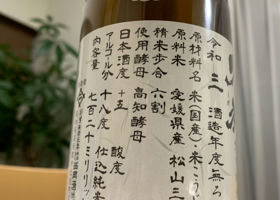 令和 三 酒造年度 無ろ
原材料名 米(国産)・米こう
原料米 愛媛県産 松山三
精米歩合 六割
使用酵母 高知酵母
日本酒度 +五 酸度
アルコール分 十八度 仕込
内容量 七百二十ミリリッ